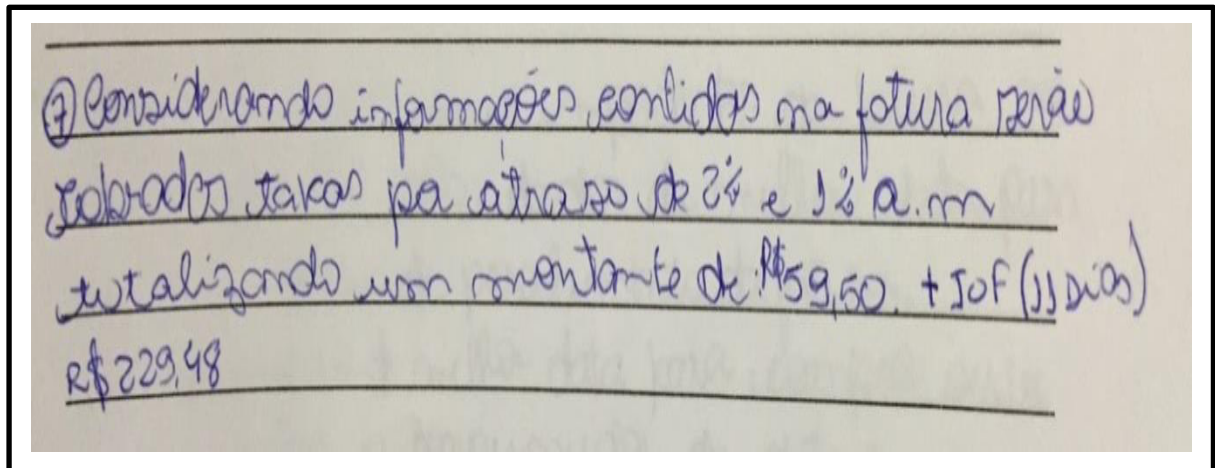 ⑦ Considerando informações contidas na fatura serão
cobrados taxas por atraso de 2% e 1% a.m
totalizando um montante de: R$59,50. + IOF (11 DIAS)
R$ 229,48